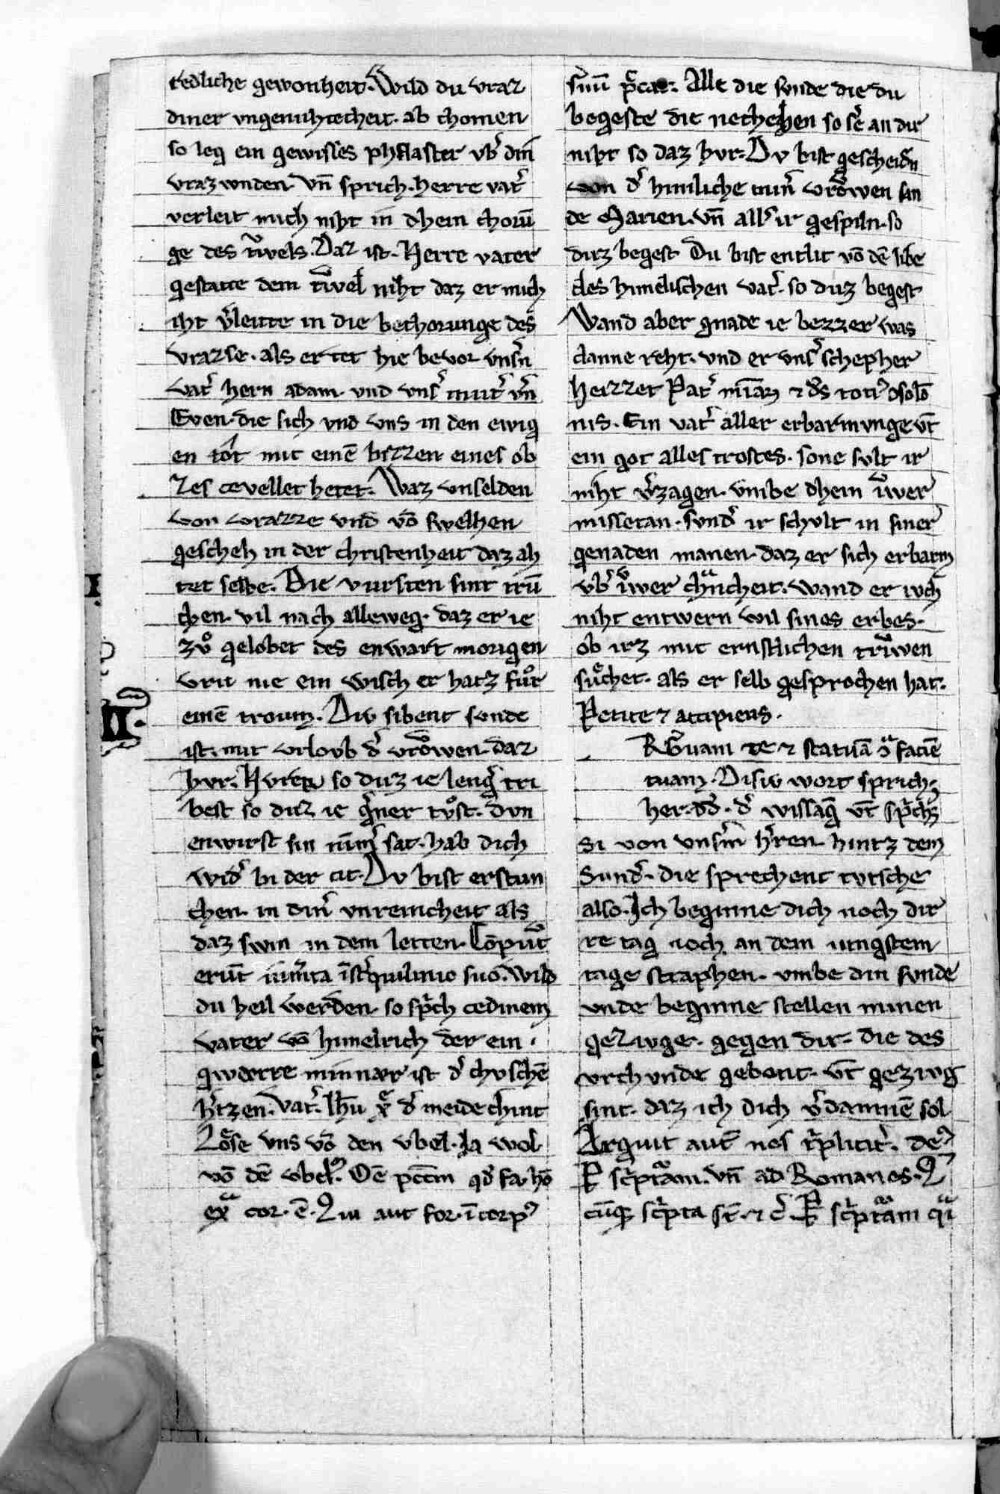 tedliche gewonheit. Wild du vraz
diner vngenuhtecheit. ab chomen
so leg ein gewisses phflaster vb̾ din
vraz wnden. vn̄ sprich. herre vat̾
verleit mich niht in dhein chorū
ge des tivels. Daz ist. Herre vater
gestatte dem tivel niht daz er mich
iht v̾leitte in die bechorunge des
vrazse. als er tet hie bevor vnsn̾
vat̾ hern adam. vnd vns̾ mut̾ vrn̄
Even. die sich vnd vns in den ewig
en tot mit einē bizzen eines ob
zes cevellet hetet. Waz vnselden
von vrazze vnd vō swelhen
gescheh in der christenheit daz ah
tet selbe. Die vursten sint trū
chen. vil nach alleweg. daz er ie
zů gelobet des enwart morigen
vrit nie ein wisch er hatz fůr
einē troum. Div sibent sunde
ist. mit vrloub d̾ vrowen. daz
hvr. Hvren so duz ie leng̾ tri
best so duz ie g̾ner tůst. dvn
enwirst sin nim̄ sat. hab dich
wid̾ bi der cit. Dv bist erstun
chen. in din̾ vnreincheit als
daz swin in dem letten. Cōputr̾
erūt ium̄ta ī st̾quilinio suo. Wild
du heil werden. so sp̾ch ce dinem
vater vō himelrich der ein.
gwerre minnær ist d̾ chvschē
h̾tzen. Vat̾. ih̄u x̄ d̾ meide chint
Lose vns vō den vbel. Ja wol
vō dē vbel. Om̄e pcc̄m qd̾ fa. hō
ex̄ cor. ē. Qui aut for. ī corp9
sinū p̾cat. Alle die sunde die du
begeste die nechelhen so sē an dir
niht so daz hvr. Dv bist gescheidn̄
von d̾ himliche mun̾ vrowen san
de Marien. vn̄ all̾ ir gespiln. so
duz begest Du bist entlit vō dē libe
des himelischen vat̾. so duz begest
Wand aber gnade ie bezzer was
danne reht. vnd er vns̾ schepher
heizzet Pat̾ mīaꝝ ⁊ d̾s toti9 ɔsolō
nis. Ein vat̾ aller erbarmvnge vn̄
ein got alles trostes. sone svlt ir
niht v̾zagen. vmbe dhein iwer
missetan. sund̾ ir schvlt in siner
genaden manen. daz er sich erbarm
vb̾ iwer chrancheit. wand er iuch
niht entwern wil sines erbes.
ob irz mit ernstlichen triwen
sůchet. als er selb gesprochen hat.
Petite ⁊ accipietis.
Arguam te ⁊ statuā ɔ̄ faciē
tuam. Disiv wort sprich
her. dd̾. d̾ wissag̾ vn̄ sp̾chz
si von vnsm̾ h̾ren. hintz dem
Sund̾. die sprechent tvtsche
also. Ich beginne dich noch dir
re tag noch an dem iungstem
tage straphen. vmbe din sunde
vnde beginne stellen minen
geziuge. gegen dir. die des
vrchunde gebent. vn̄ geziug
sint. daz ich dich v̾damnē sol
Arguit aut̄ nos t̾plicit̾. de9
P̄ sc̾ptam. vn̄ ad Romanos. Q̄
cūq; sc̾pta st̄. ⁊ c̾. P̄ sc̾ptam qi